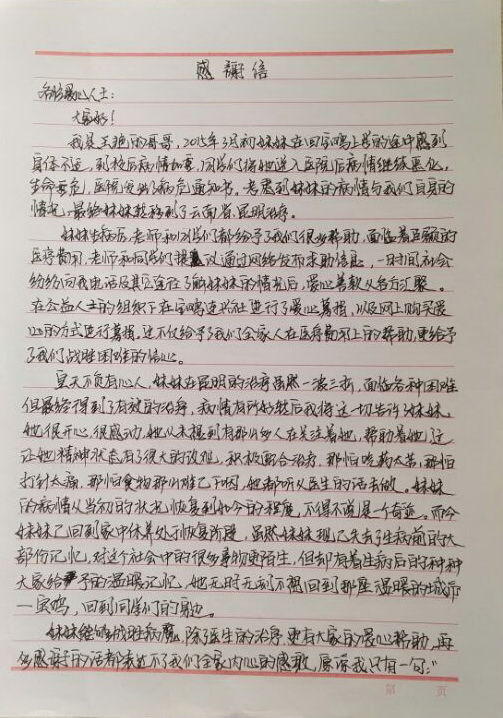 感谢信
各位爱心人士：
大家好！
我是王艳的哥哥，2015年3月初妹妹在回宝鸡上学的途中感到
身体不适，到校后病情加重，同学们将她送入医院后病情继续恶化，
生命垂危，医院发出病危通知书，考虑到妹妹的病情与我们自身的
情况，最终妹妹转移到了云南省昆明治疗。
妹妹生病后，老师和同学们都给予了我们很多帮助，面临着巨额的
医疗费用，老师和同学们提议通过网络发布求助信息，一时间社会
纷纷向我电话及其它途径了解妹妹的情况后，爱心善款从各方汇聚。
在公益人士的组织下在宝鸡进行了爱心募捐，以及网上购买爱
心的方式进行募捐。这不仅给予了我们全家人在医疗费用上的帮助，更给予
了我们战胜困难的信心。
皇天不负有心人，妹妹在昆明的治疗虽然一波三折，面临各种困难
但最终得到了有效的治疗，病情有所好转后我将这一切告诉妹妹。
她很开心，很感动，她从未想到有那么多人在关注着她，帮助着她，这
让她精神状态有了很大的改观，积极配合治疗，那怕吃药太苦，那怕
打针太痛，那怕食物那以难已下咽，她都听从医生的话去做。妹妹
的病情从当初的状况恢复到如今的程度，不得不说是一个奇迹，而今
妹妹已回到家中休养处于恢复阶段，虽然妹妹现已失去了生病前的大
部份记忆，对这个社会中的很多事物更陌生，但却有着生病后的种种
大家给予的温暖记忆，她无时无刻不想回到那座温暖的城市
—宝鸡，回到同学们的身边。
妹妹能够战胜病魔，除了医生的治疗，更有大家的爱心帮助，再
多感谢的话都表达不了我们全家内心的感激，原谅我只有一句："
第 页